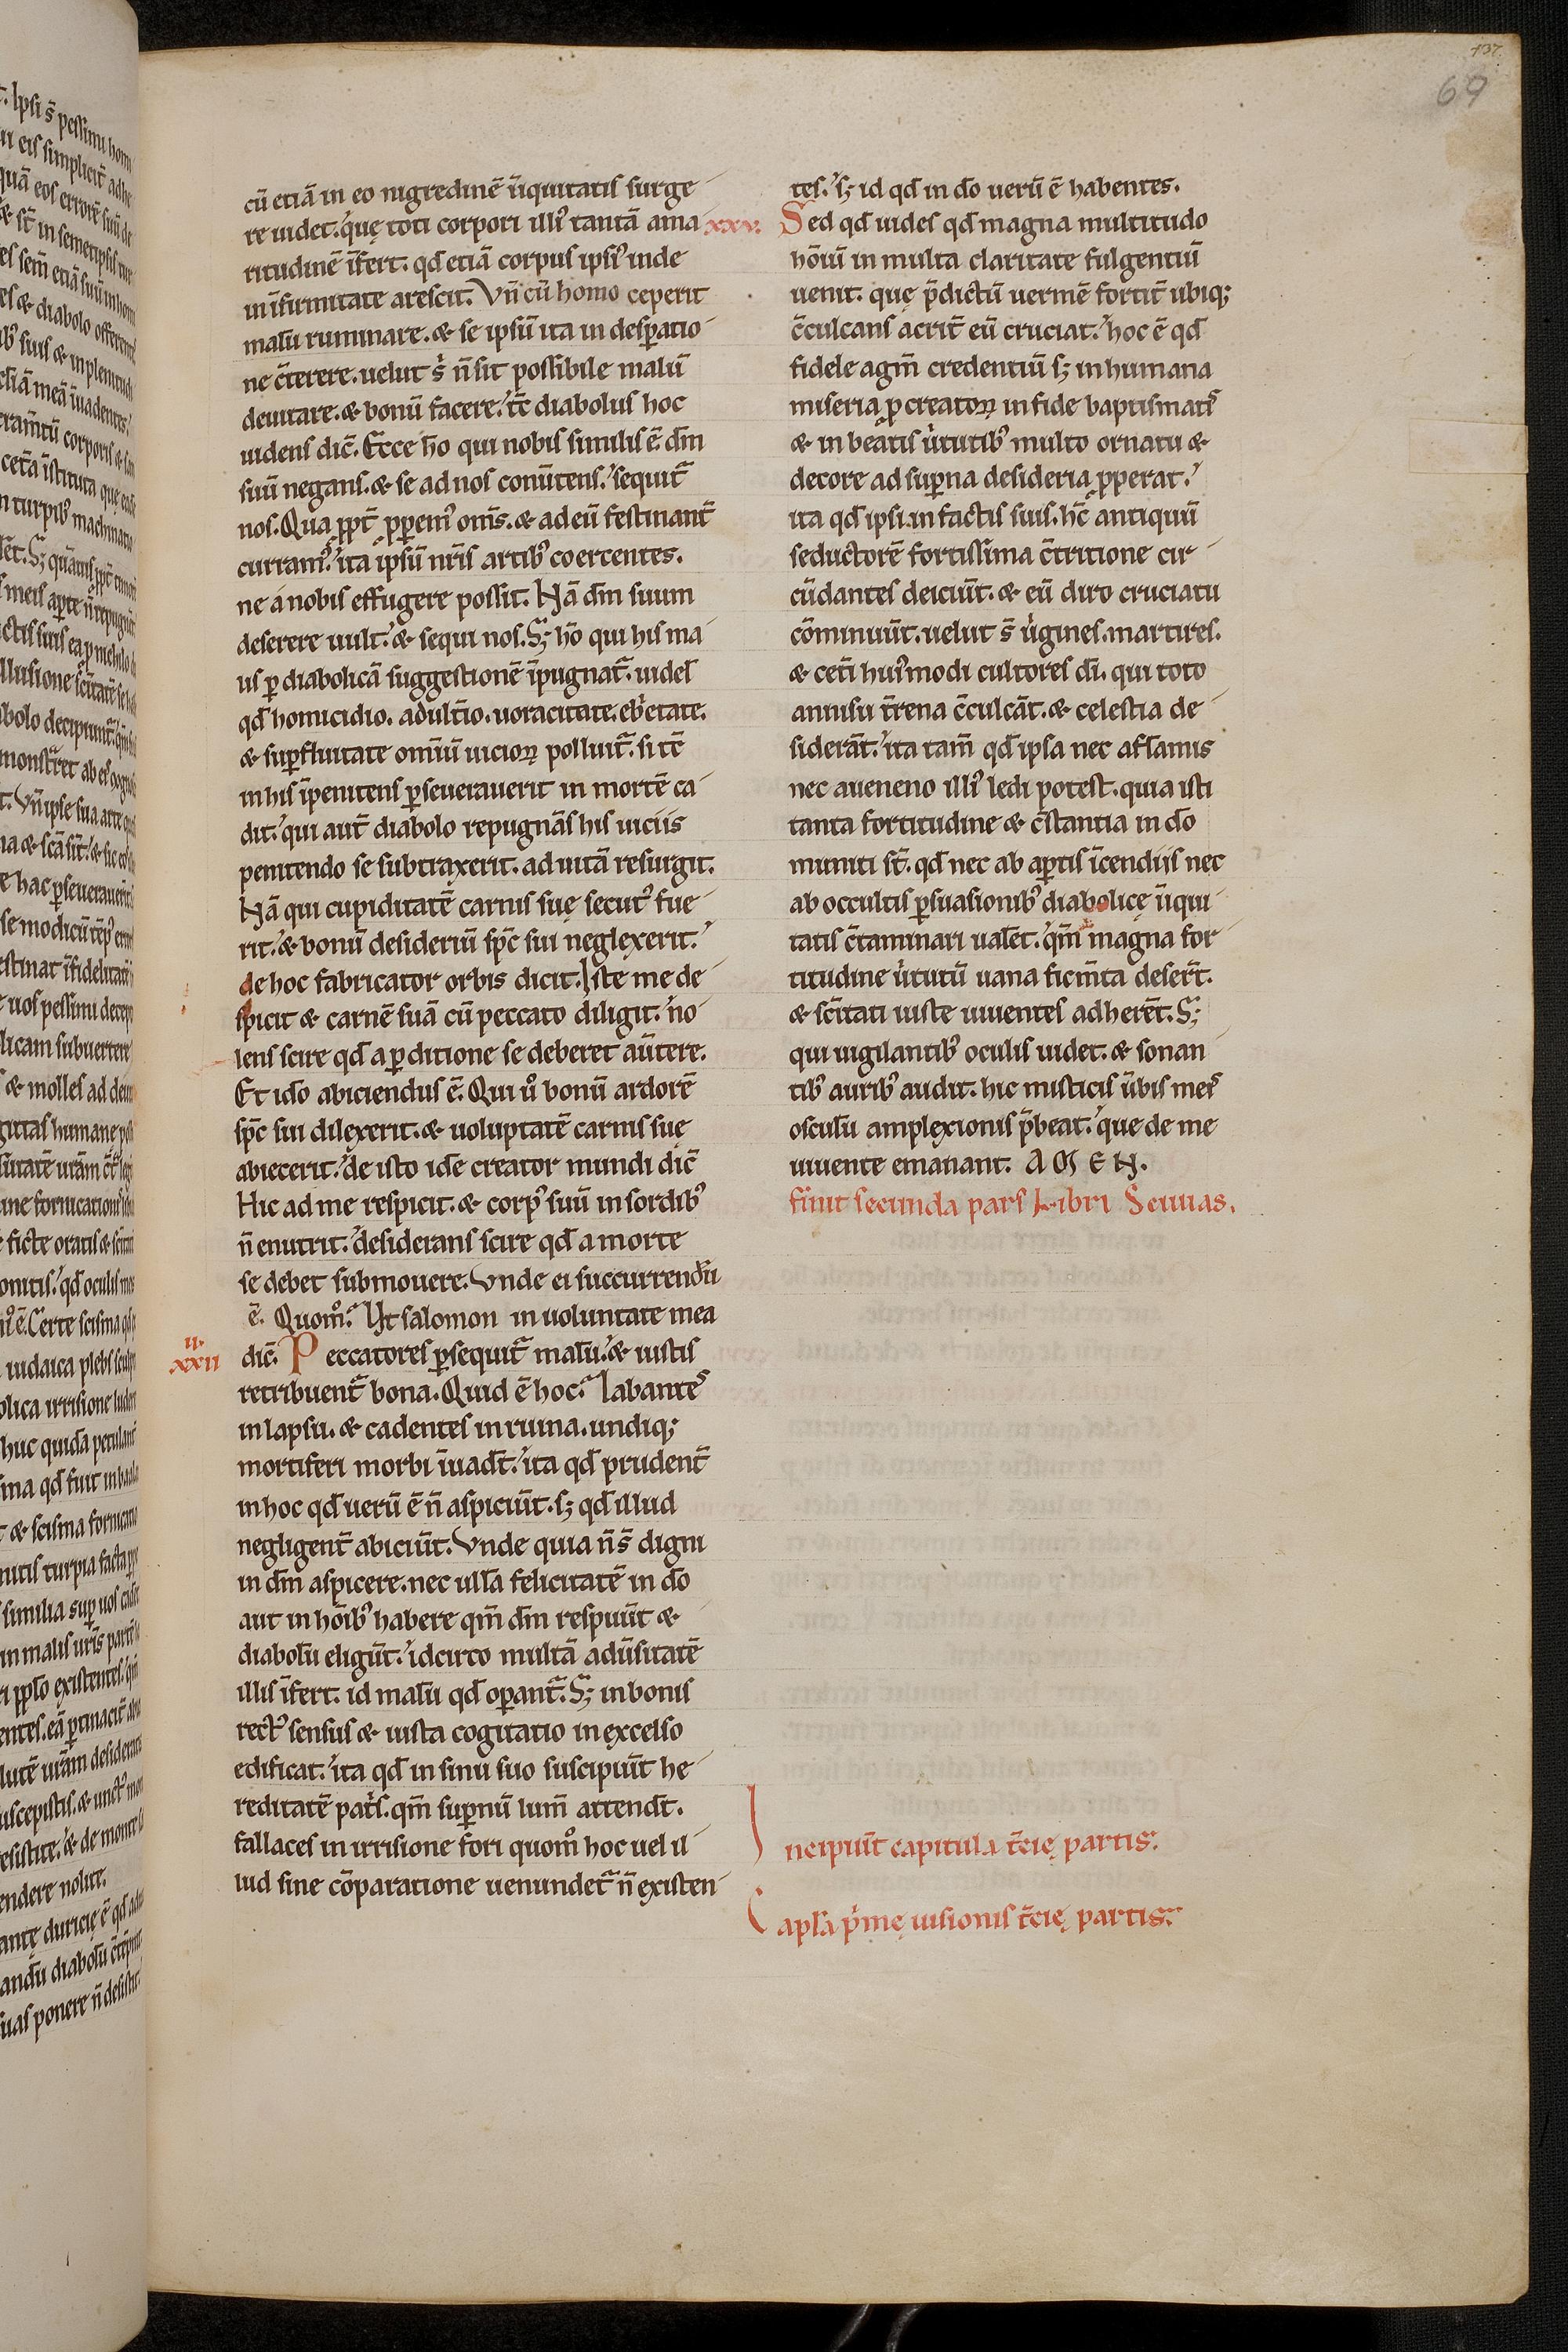 137.
69
cū etiā in eo nigredinē iīquitatis surge
re uidet. quę toti corpori illi' tantā ama
ritudinē īfert. qd̄ etiā corpus ipsi' inde
in īfirmitate arescit. Vn̄ cū homo ceperit
malū ruminare. & se ipsū ita in desꝑatio
ne c̄terere. uelut s̄ n̄ sit possibile malū
deuitare. & bonū facere. tc̄ diabolus hoc
uidens dic̄. Ecce ho qui nobis similis ē. dm̄
suū negans. & se ad nos conūtens. sequit̄
nos. Qua ꝓpt̄ ꝓꝑem' om̄s. & ad eū festinant̄
curram'. ita ipsū nr̄is artib' coercentes.
ne a nobis effugere possit. Nā dm̄ suum
deserere uult. & sequi nos. Sꝫ hō qui his ma
lis ꝑ diabolicā suggestionē īpugnat̄. uidel
qd̄ homicidio. adult̄io. uoracitate. eb'etate.
& suꝑfluitate omīū uicioꝝ polluit̄. si tc̄
in his īpenitens ꝑseuerauerit in mortē ca
dit. qui aut̄ diabolo repugnās his uiciis
penitendo se subtraxerit. ad uitā resurgit.
Nā qui cupiditatē carnis suę secut' fue
rit. & bonū desideriū spc̄ sui neglexerit.
de hoc fabricator orbis dicit. Iste me de
spicit & carnē suā cū peccato diligit. no
lens scire qd̄ a ꝑditione se deberet aūtere.
Et ido abiciendus ē. Qui u° bonū ardorē
spc̄ sui dilexerit. & uoluptatē carnis suę
abiecerit. de isto idē creator mundi dic̄
Hic ad me respicit. & corp' suū in sordib'
n̄ enutrit. desiderans scire qd̄ a morte
se debet submouere. Vnde ei succurrendū
ē. Quom°. Ut salomon in uoluntate mea
xxii
dic̄. Peccatores ꝑsequit̄ malū. & iustis
retribuent̄ bona. Quid ē hoc. labantes
in lapsu. & cadentes in ruina. undiqꝫ
mortiferi morbi īuadt̄. ita qd̄ prudent̄
in hoc qd̄ uerū ē n̄ aspiciūt. sꝫ qd̄ illud
negligent̄ abiciūt. Vnde quia n̄ s̄ digni
in dm̄ aspicere. nec ullā felicitatē in do
aut in hoīb' habere qm̄ dm̄ respuūt &
diabolū eligūt. idcirco multā adūsitatē
illis īfert. id malū qd̄ oꝑant̄. Sꝫ in bonis
rect' sensus & iusta cogitatio in excelso
edificat. ita qd̄ in sinu suo suscipiūt he
reditatē patis. qm̄ suꝑnū lum̄ attendt̄.
fallaces in irrisione fori quom° hoc uel il
lud sine cōparatione uenundet̄ n̄ existen
tes. sꝫ id qd̄ in do uerū ē habentes.
xxv.
Sed qd̄ uides qd̄ magna multitudo
hōiū in multa claritate fulgentiū
uenit. quę p̄dictū uermē fortit̄ ubiqꝫ
c̄culcans acrit̄ eū cruciat. hoc ē qd̄
fidele agm̄ credentiū sꝫ in humana
miseria ꝓcreatoꝝ in fide baptismatis
& in beatis ūtutib' multo ornatu &
decore ad suꝑna desideria ꝓperat.
ita qd̄ ipsi in factis suis. hc̄ antiquū
seductorē fortissima c̄tritione cir
cūdantes deiciūt. & eū diro cruciatu
cōminuūt. uelut s̄ ūgines. martires.
& cet̄i hui'modi cultores di. qui toto
annisu t̄rena c̄culcāt. & celestia de
siderāt. ita tam̄ qd̄ ipsa nec a flāmis
nec a ueneno illi' ledi potest. quia isti
tanta fortitudine & c̄stantia in do
muniti st̄. qd̄ nec ab aꝑtis īcendiis nec
ab occultis ꝑsuasionib' diabolicę iīqui
tatis c̄taminari ualet. qm̄ magna for
titudine ūtutū uana ficm̄ta deser̄t.
& scītati iuste uiuentes adherēt. Sꝫ
qui uigilantib' oculis uidet. & sonan
tib' aurib' audit. hic misticis ūbis meis
osculū amplexionis p̄beat. que de me
uiuente emanant. AMEN.
finit secunda pars Libri Sciuias.
Incipiūt capitula t̄cię partis.
Capl̄a p'mę uisionis t̄cię partis.